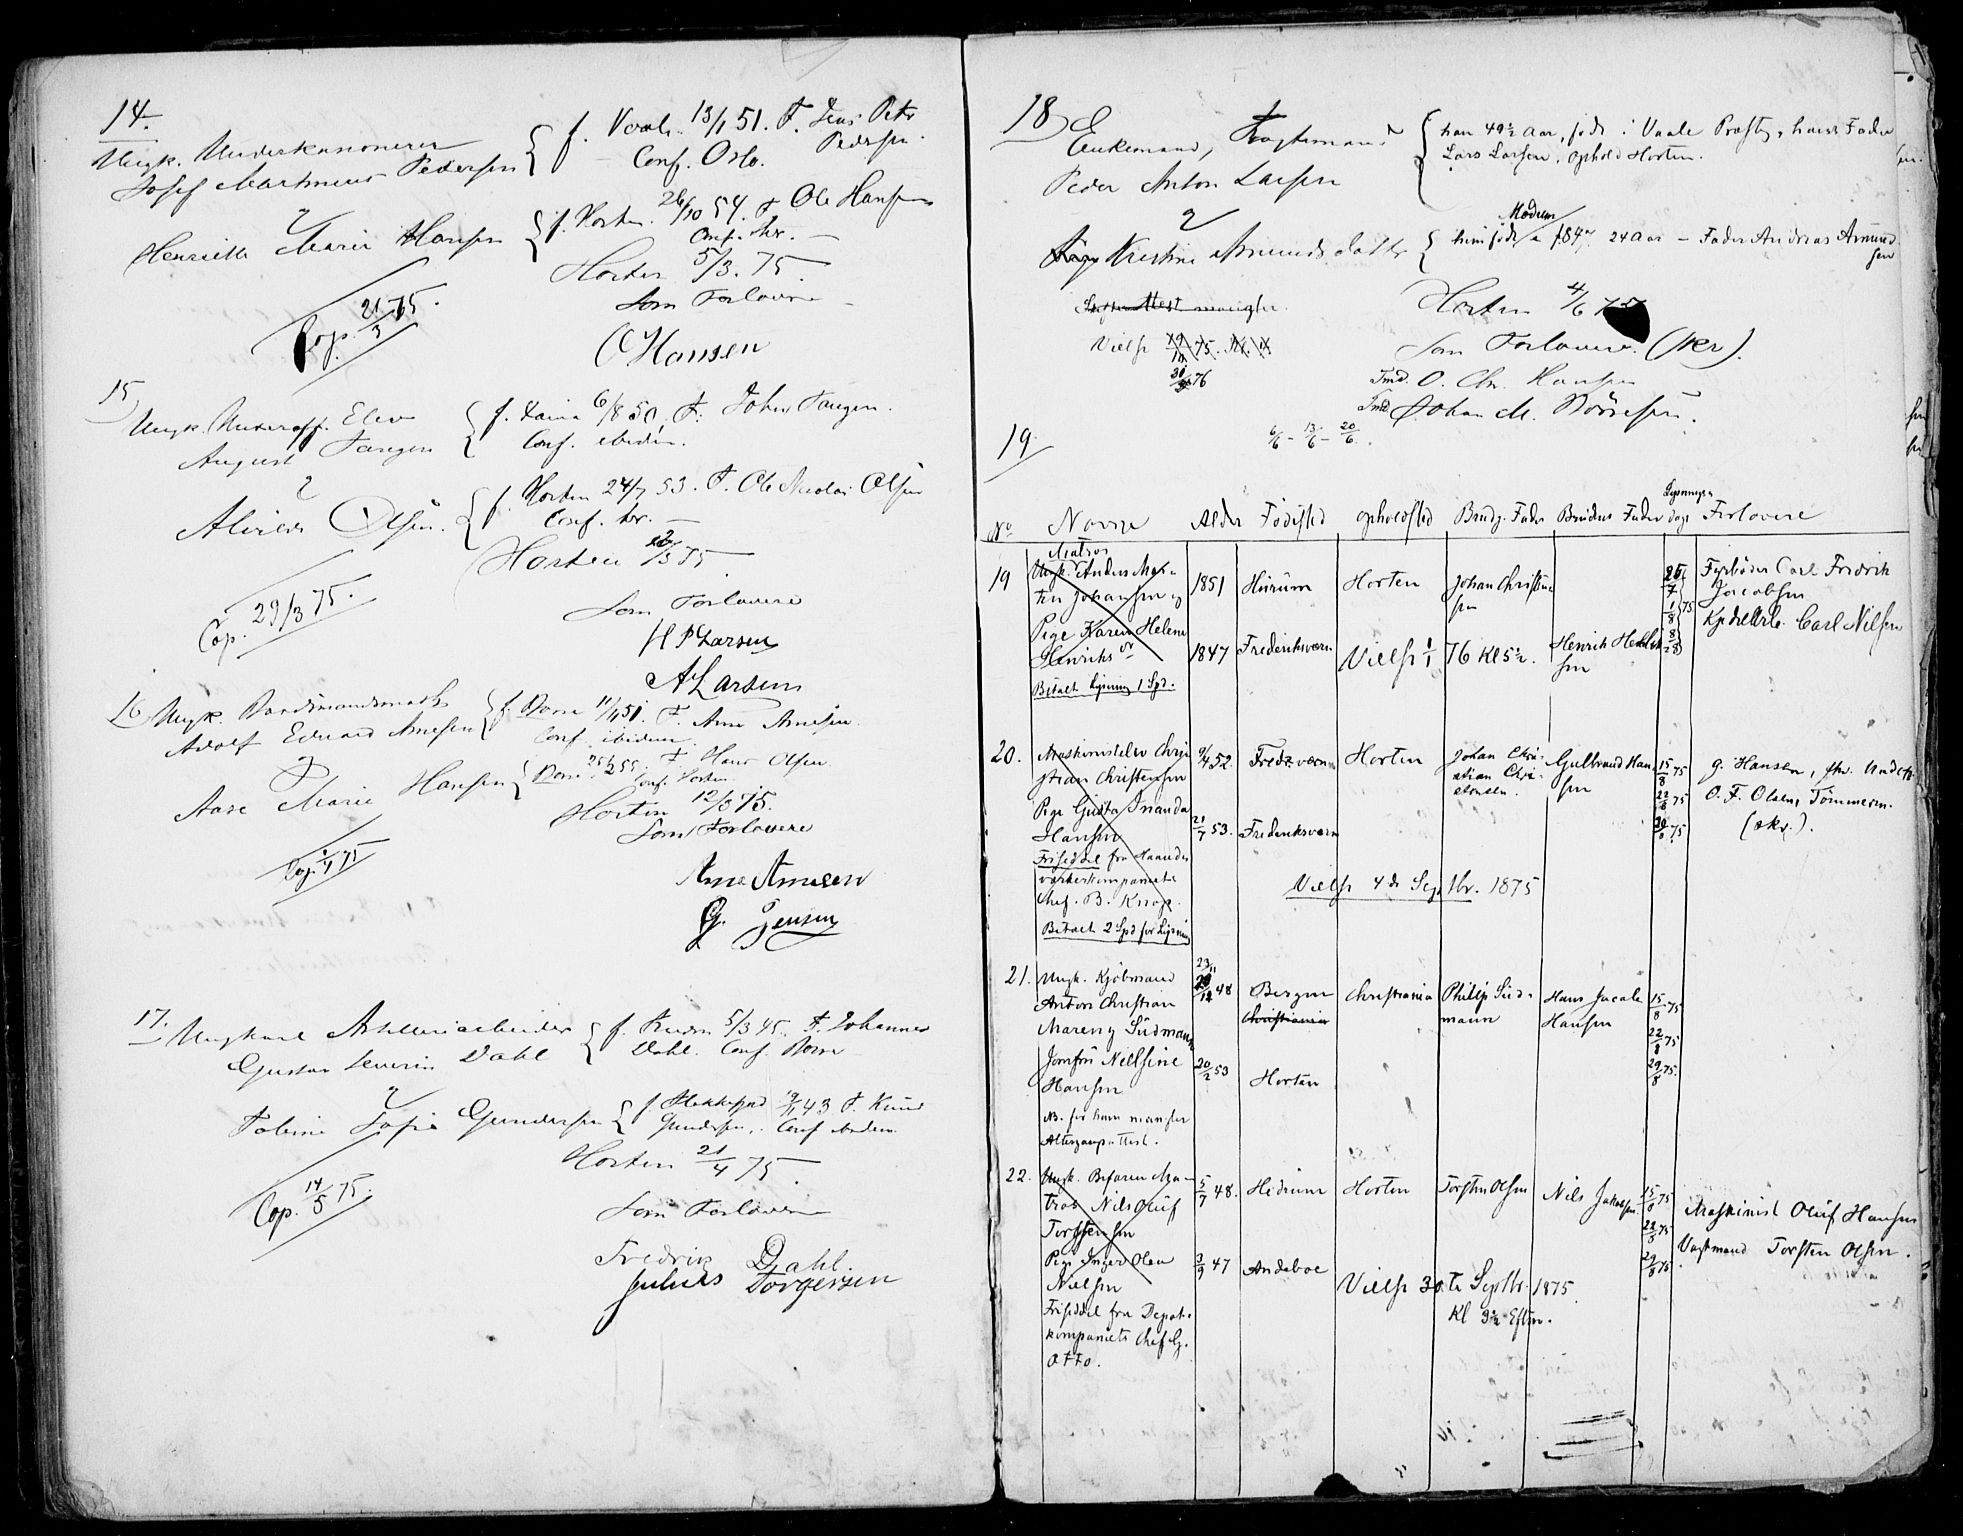 14.
Ungk. Underkanoneer
Josef Martinius Pedersen
f. Vaale 13/1 51. F. Jens Peter
Pedersen
Conf. Oslo.
&
Henriette Marie Hansen
f. Horten 26/10 54. F. Ole Hansen
Conf. her.
Horten 5/3. 75.
Som Forlovere
Cop. 21/3 75.
O Hansen
15
Ungk. Underoff. Elev
August Tangen
f. 6/8 50, F. Johan Tangen.
Conf. ibidem.
&
Alvilde Olsen.
f. Horten 24/7 53. F. Ole Nicolai Olsen
Conf. her.
Horten /3 75
Cop. 29/3 75.
Som Forlovere
H P Larsen
A Larsen
16 Ungk. Baadsmandsmath
Adolf Edvard Arnesen
f. Borre 11/1 51. F. Arne Arnesen.
Conf. ibidem.
&
Aase Marie Hansen
Borre 25/2 55. F. Hans Olsen
Conf. Horten.
Horten 12/3 75.
Som Forlovere
Cop. 1/4 75
Arne Arnesen
G. Jensen
17.
Ungkarl Artilleriarbeider
Gustav Severin Dahl
f. 5/3 45. F. Johannes
Dahl. Conf. Borre
&
Tobine Sofie Gundersen
f. 43 F. Knud
Gundersen, Conf.
Horten 21/4 75.
Cop. 14/5 75.
Som Forlovere
Fredrik Dahl.
Julius Torgersen
18
Enkemand, Fragtemand
Peder Anton Larsen
han 49½ Aar, født i Vaale Præstgj., hans Fader
Lars Larsen, ophold Horten.
&
Pige Kristine Amundsdatter
Modum
hun født i 184 , 24 Aar - Fader Andreas Amund
sen
mangler.
Horten 4/6 75
Vielse 75.
30/ 76
Som Forlovere. (skr).
Tmd. O. Chr. Hansen
Tmd. Johan M. Børresen.
6/6 - 13/6 - 20/6.
19.
No Navne Alder Fødested Opholdsted Brudg. Fader Brudens Fader Lysnings dage Forlovere
19
Matros
Ungk. Anders Mar-
tin Johansen og
1851 Hurum Horten Johan Christian
sen
25/7
1/8 75
8/8
Fyrbøder Carl Fredrik
Jacobsen
Carl Nilsen
Pige Karen Helene
Henriks dr
1847 Frederiksværn Vielse 1/1 76 Kl 5½. Henrik Henrik
sen
Betalt Lysning 1 Spd.
20.
Maskinistelev Chri-
stian Christensen
9/4 52. Fredr.værn Horten Johan Chri-
stian Chri-
stensen.
Gulbrand Han
sen
15/8 75
22/8 75
29/8 75
G. Hansen,
O. F. Olsen, Tømmerm.
(skr.).
Pige Gusta Inanda
Hansen
21/7 53. Frederiksværn
Friseddel fra Haandv
værkerkompaniets
Chef. B. Knap.
Vielse 4de Septbr. 1875
Betalt 2 Spd for Lysning
21.
Ungk. Kjøbmand
Anton Christian
Mareng Südmann
23/11
48
Bergen
Christiania
Christiania
Philip Süd-
mann
Hans Jacob
Hansen
15/8 75
22/8 75
29/8 75.
Jomfru Nilsine
Hansen
20/2 53 Horten
NB. for ham mangler
Altergangsattest.
22.
Ungk. Befaren Ma-
tros Nils Oluf
Torstensen
5/7 48. Hedrum Horten Torsten Olsen Nils Jakobsen
15/8 75
22/8 75
29/8 75.
Maskinist Oluf Hansen
Vagtmand Torsten Olsen.
Pige Inger Olea
Nielsen
3/9 47 Andeboe
Vielse 30.te Septbr. 1875.
Kl 3½ Efterm.
Friseddel fra Depot-
kompaniets Chef G.
Otto.